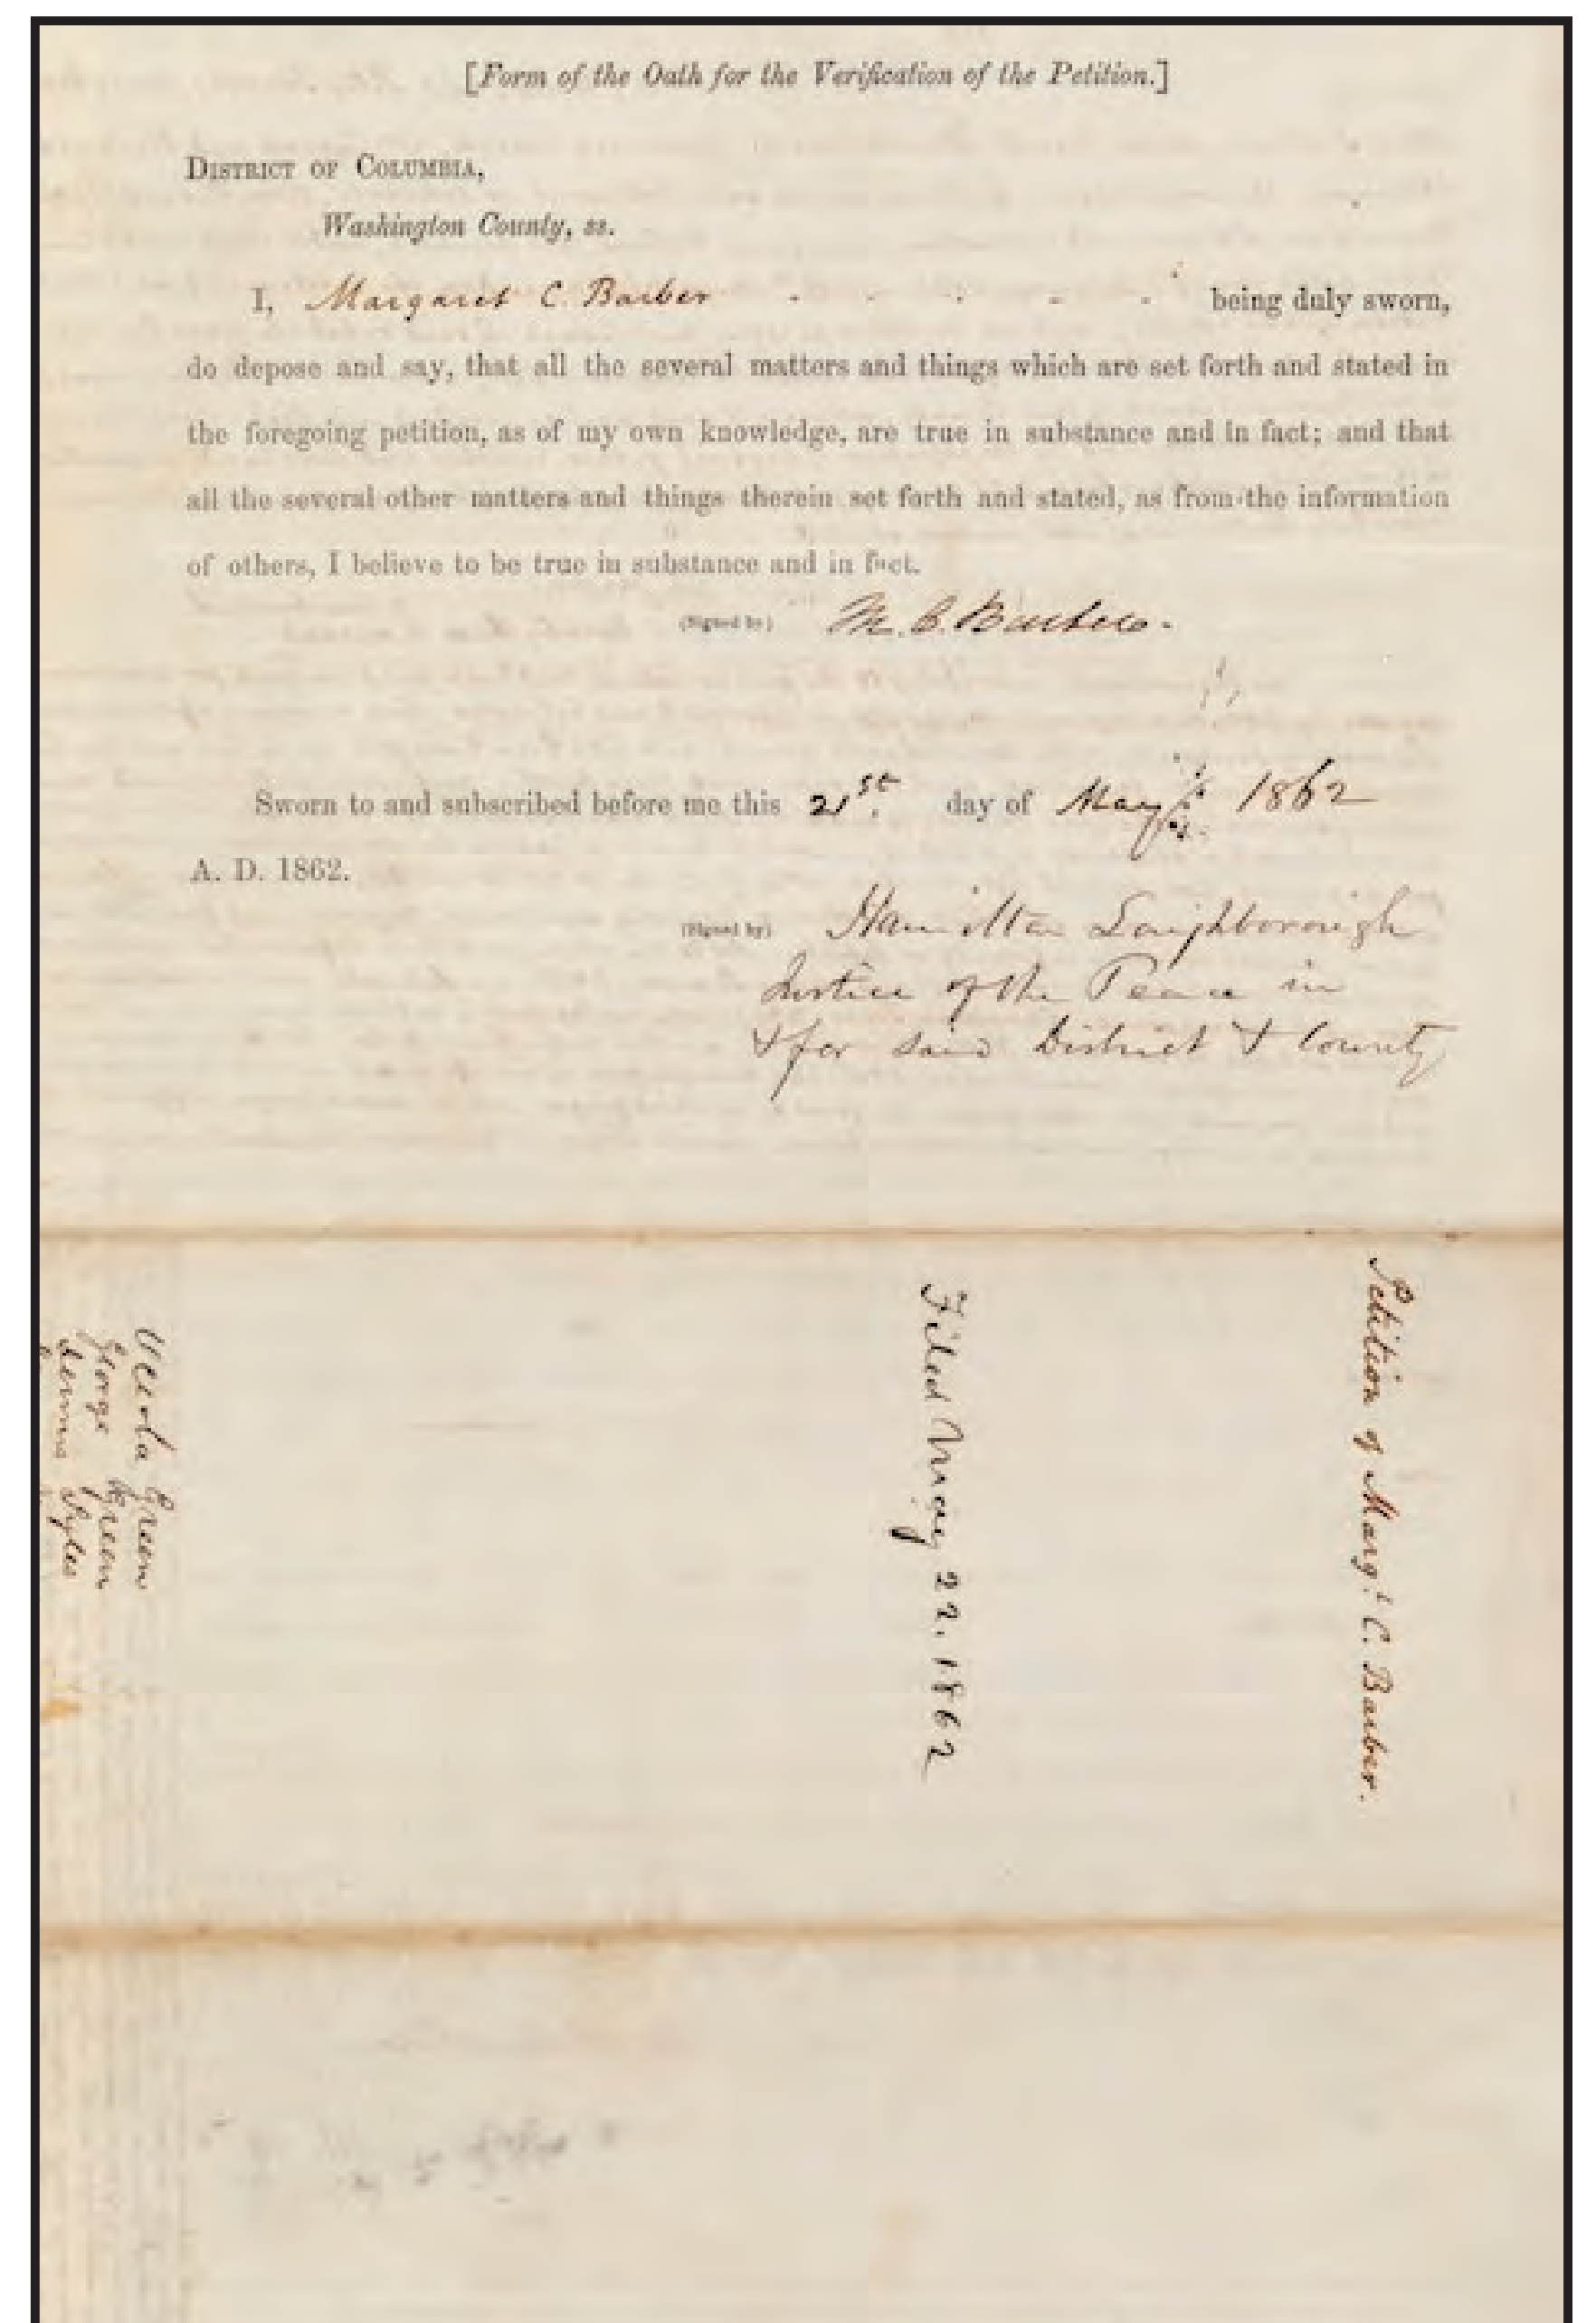 [Form of the Oath for the Verification of the Petition.]
DISTRICT OF COLUMBIA,
Washington County, ss.
I, Margaret C. Barber - - - - - being duly sworn,
do depose and say, that all the several matters and things which are set forth and stated in
the foregoing petition, as of my own knowledge, are true in substance and in fact; and that
all the several other matters and things therein set forth and stated, as from the information
of others, I believe to be true in substance and in fact.
(Signed by) M. C. Barber.
Sworn to and subscribed before me this 21st. day of May 1862
A. D. 1862.
(Signed by) Hamilton Loughborough
Justice of the Peace in
& for said District & County
Petition of Margt. C. Barber.
Filed May 22. 1862
Green
George Green
Syles